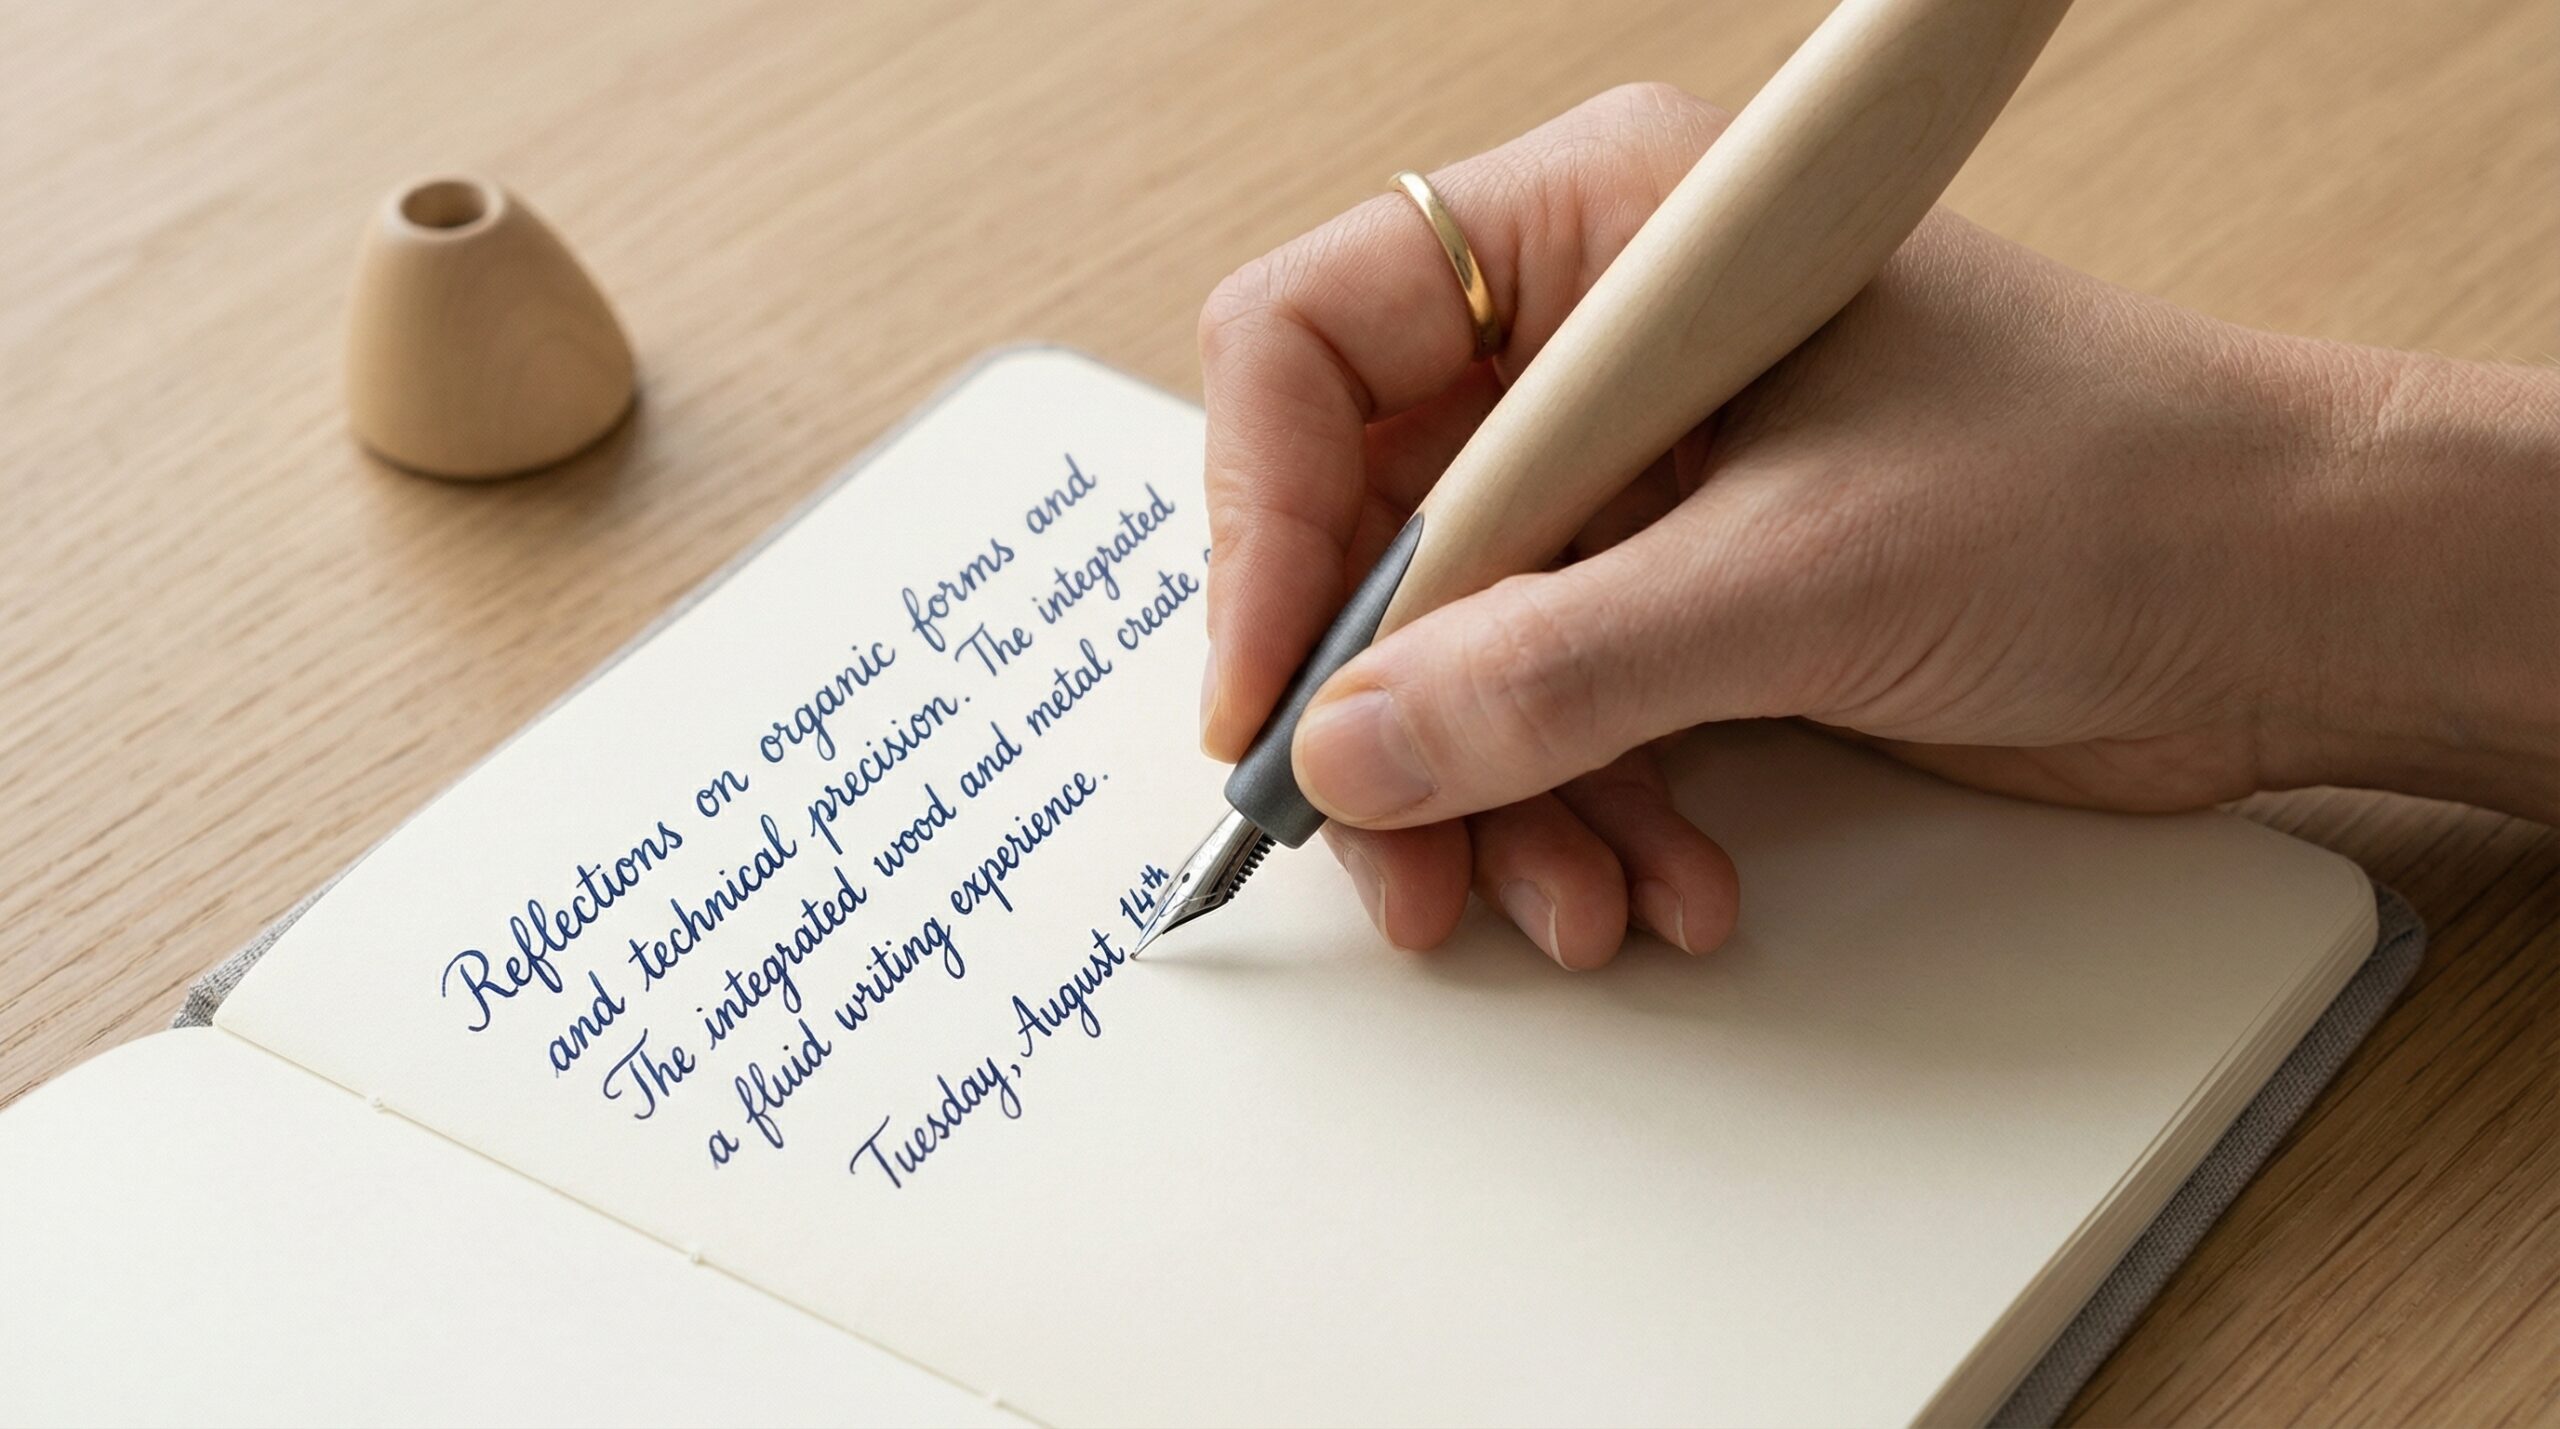 Reflections on organic forms and
and technical precision. The integrated
The integrated wood and metal create
a fluid writing experience.
Tuesday, August 14th